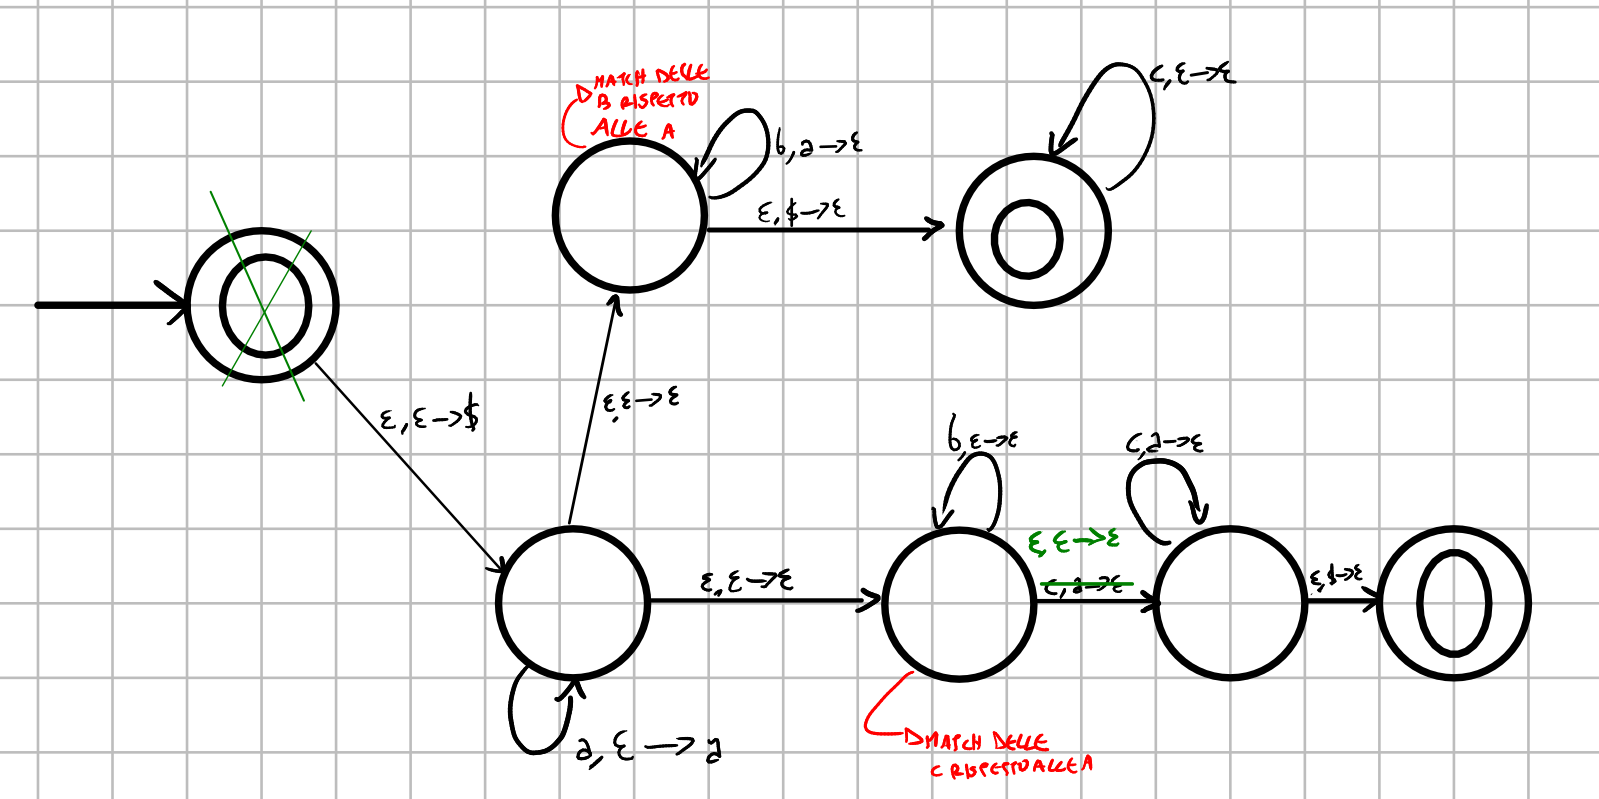 MATCH DELLE
B RISPETTO
ALLE A
b, a → ε
ε, $ → ε
c, ε → ε
ε, ε → $
ε, ε → ε
b, ε → ε
c, a → ε
ε, ε → ε
ε, ε → ε
c, a → ε
ε, $ → ε
a, ε → a
MATCH DELLE
C RISPETTO ALLE A